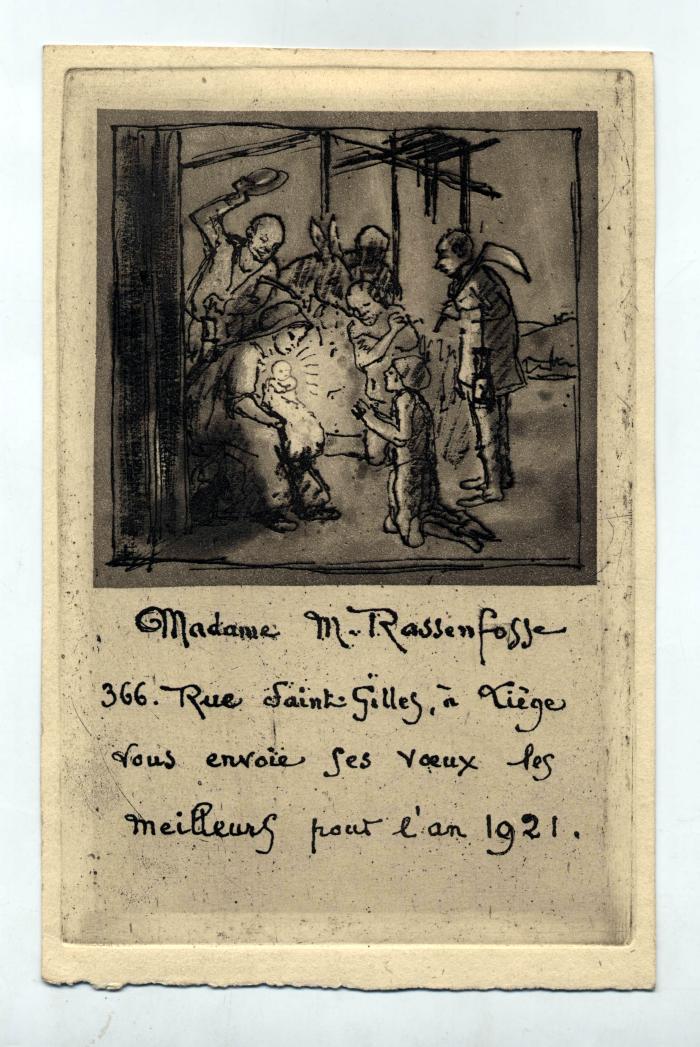 Madame M. Rassenfosse
366. Rue Saint-Gilles, à Liège
vous envoie ses vœux les
meilleurs pour l'an 1921.